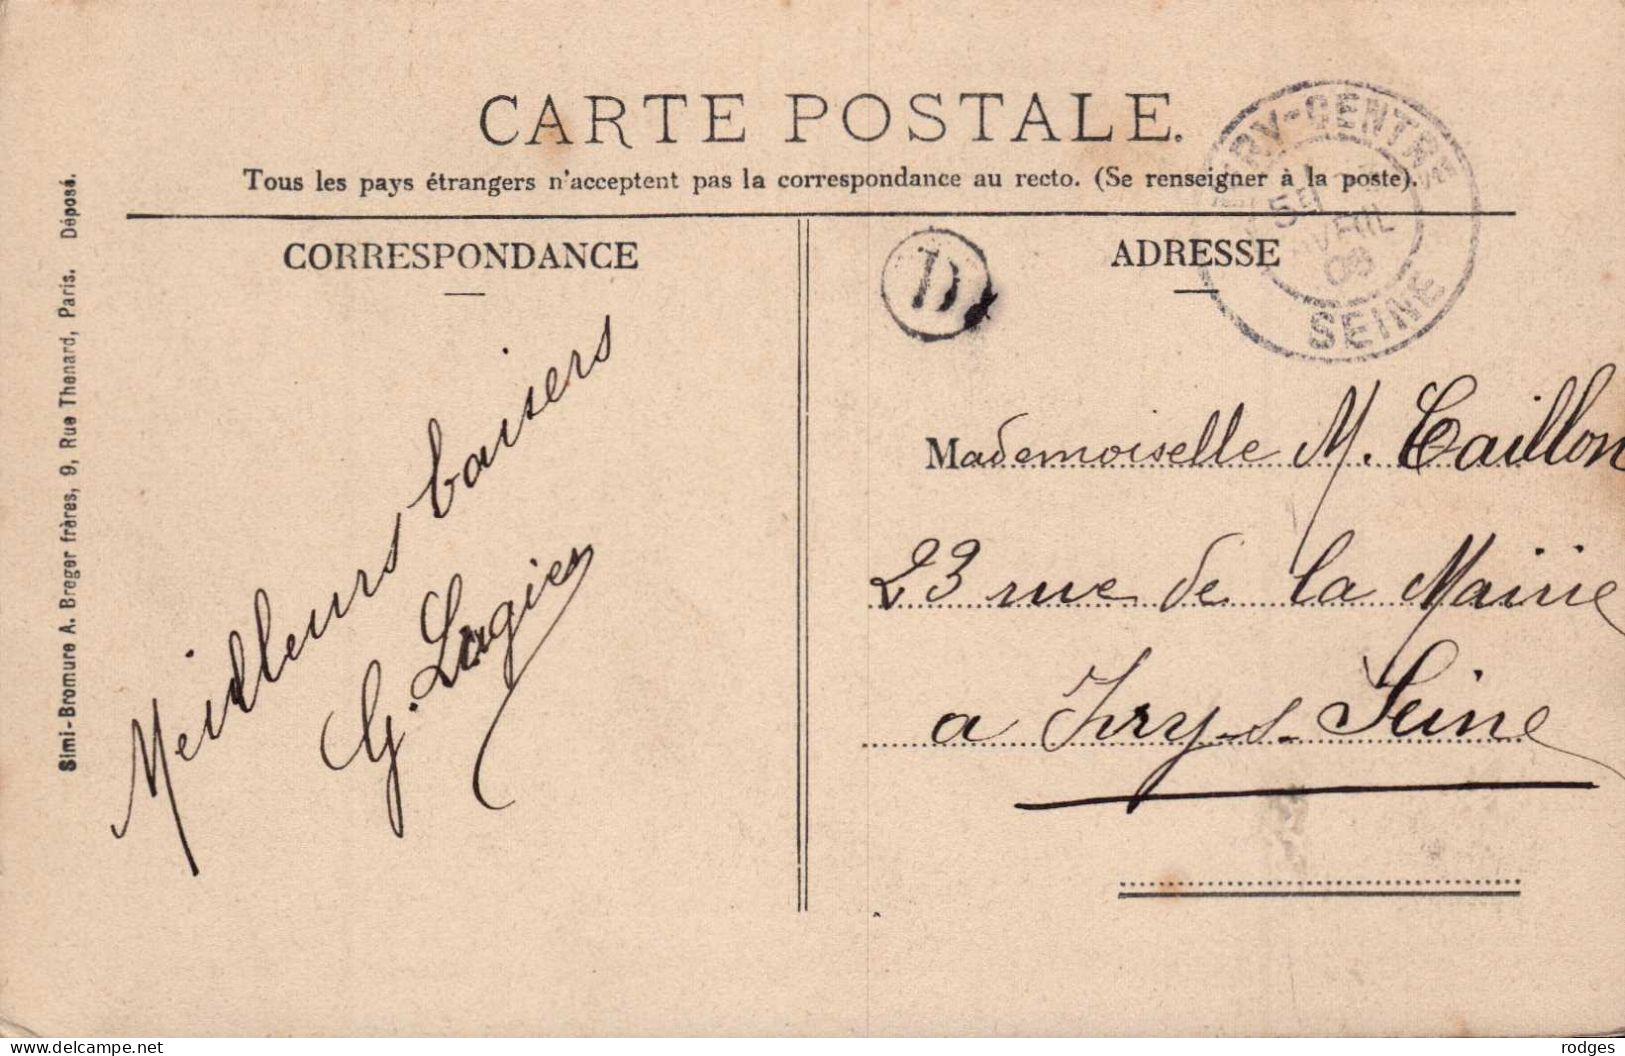 CARTE POSTALE.
Tous les pays étrangers n'acceptent pas la correspondance au recto. (Se renseigner à la poste).
CORRESPONDANCE
Meilleurs baisers
G. Lagier
Simi-Bromure A. Breger frères, 9, Rue Thenard, Paris. Déposé.
D
ADRESSE
IVRY-CENTRE
AVRIL
08
SEINE
Mademoiselle M. Caillon
23 rue de la Mairie
a Ivry-s-Seine
delcampe.net
rodges